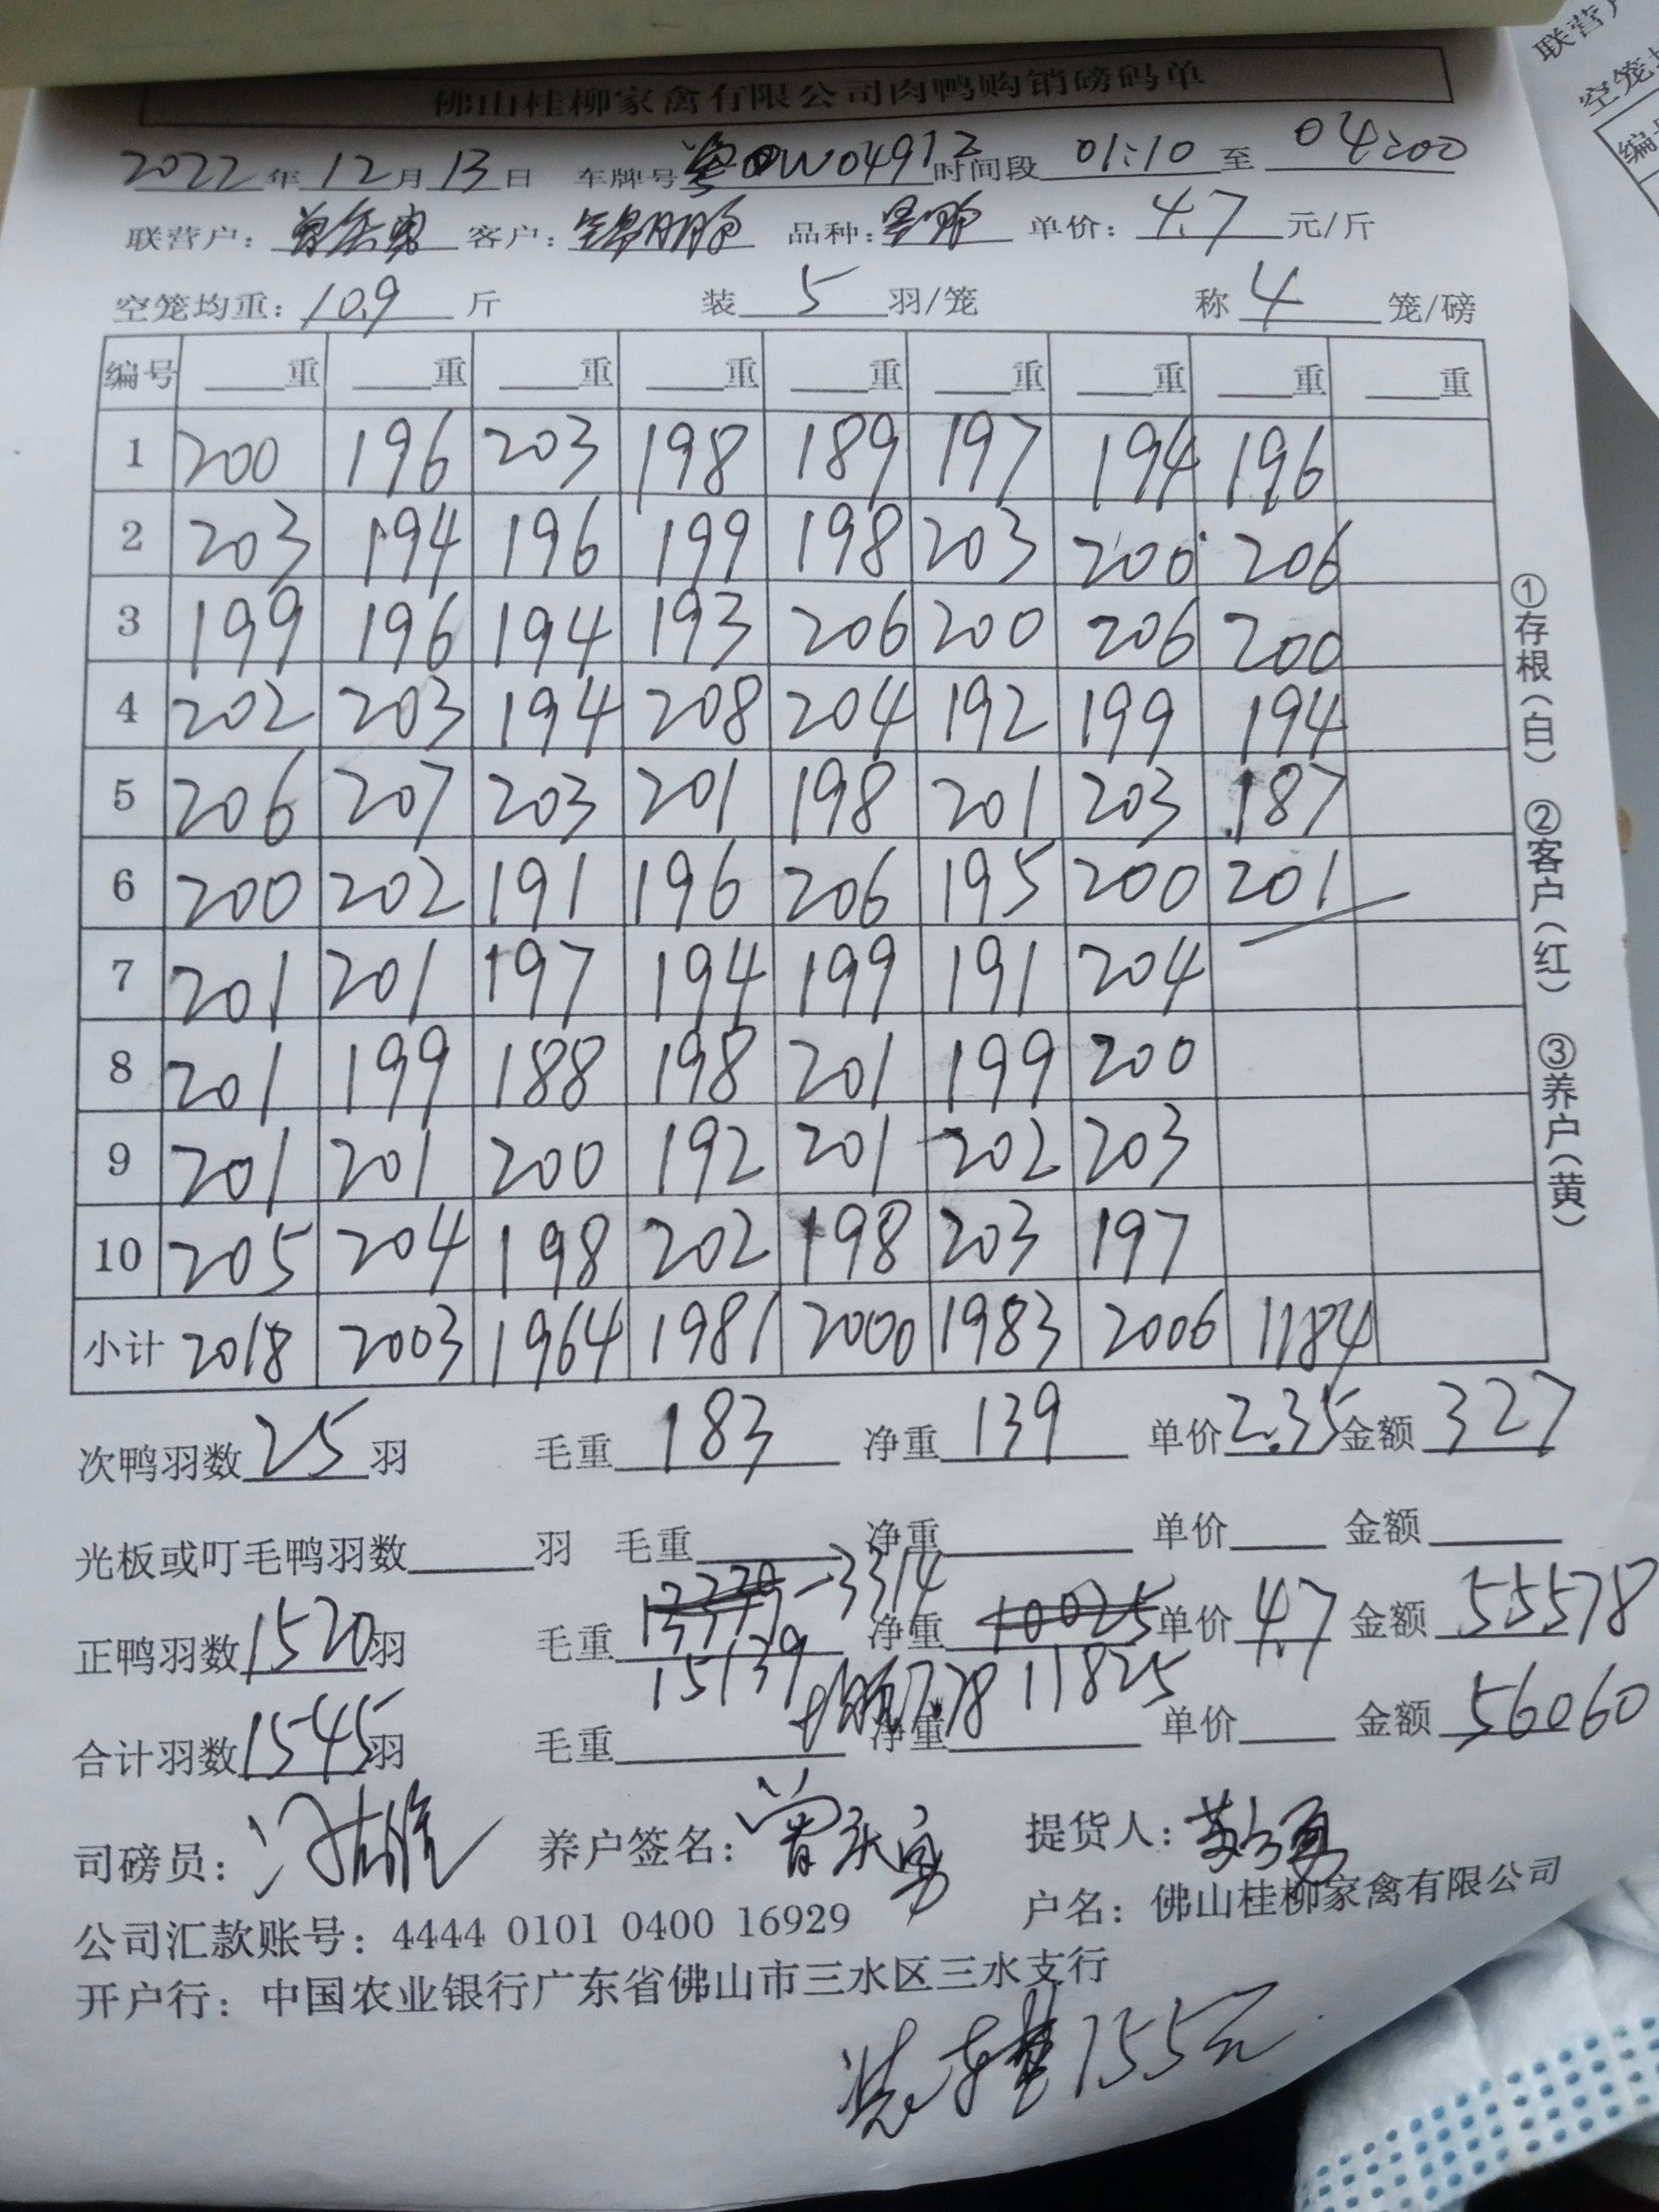 佛山桂柳家禽有限公司肉鸭购销磅码单
2022年12月13日 车牌号 W04912 时间段 01:10 至 04:00
联营户: 客户: 品种: 单价: 4.7 元/斤
空笼均重: 10.9 斤 装 5 羽/笼 称 4 笼/磅
编号 重 重 重 重 重 重 重 重 重
1 200 196 203 198 189 197 194 196
2 203 194 196 199 198 203 200 206
3 199 196 194 193 206 200 206 200
4 202 203 194 208 204 192 199 194
5 206 207 203 201 198 201 203 187
6 200 202 191 196 206 195 200 201
7 201 201 197 194 199 191 204
8 201 199 188 198 201 199 200
9 201 201 200 192 201 202 203
10 205 204 198 202 198 203 197
小计 2018 2003 1964 1981 2000 1983 2006 1184
次鸭羽数 25 羽 毛重 183 净重 139 单价 2.35 金额 327
光板或叮毛鸭羽数 羽 毛重 净重 单价 金额
-3314
正鸭羽数 1520 羽 毛重 净重 10025 单价 4.7 金额 55578
15139 7.78 11825
合计羽数 1545 羽 毛重 净重 单价 金额 56060
司磅员: 养户签名: 提货人:
公司汇款账号: 4444 0101 0400 16929 户名: 佛山桂柳家禽有限公司
开户行: 中国农业银行广东省佛山市三水区三水支行
装车费155元
①存根(白) ②客户(红) ③养户(黄)
联营户
空笼
编号